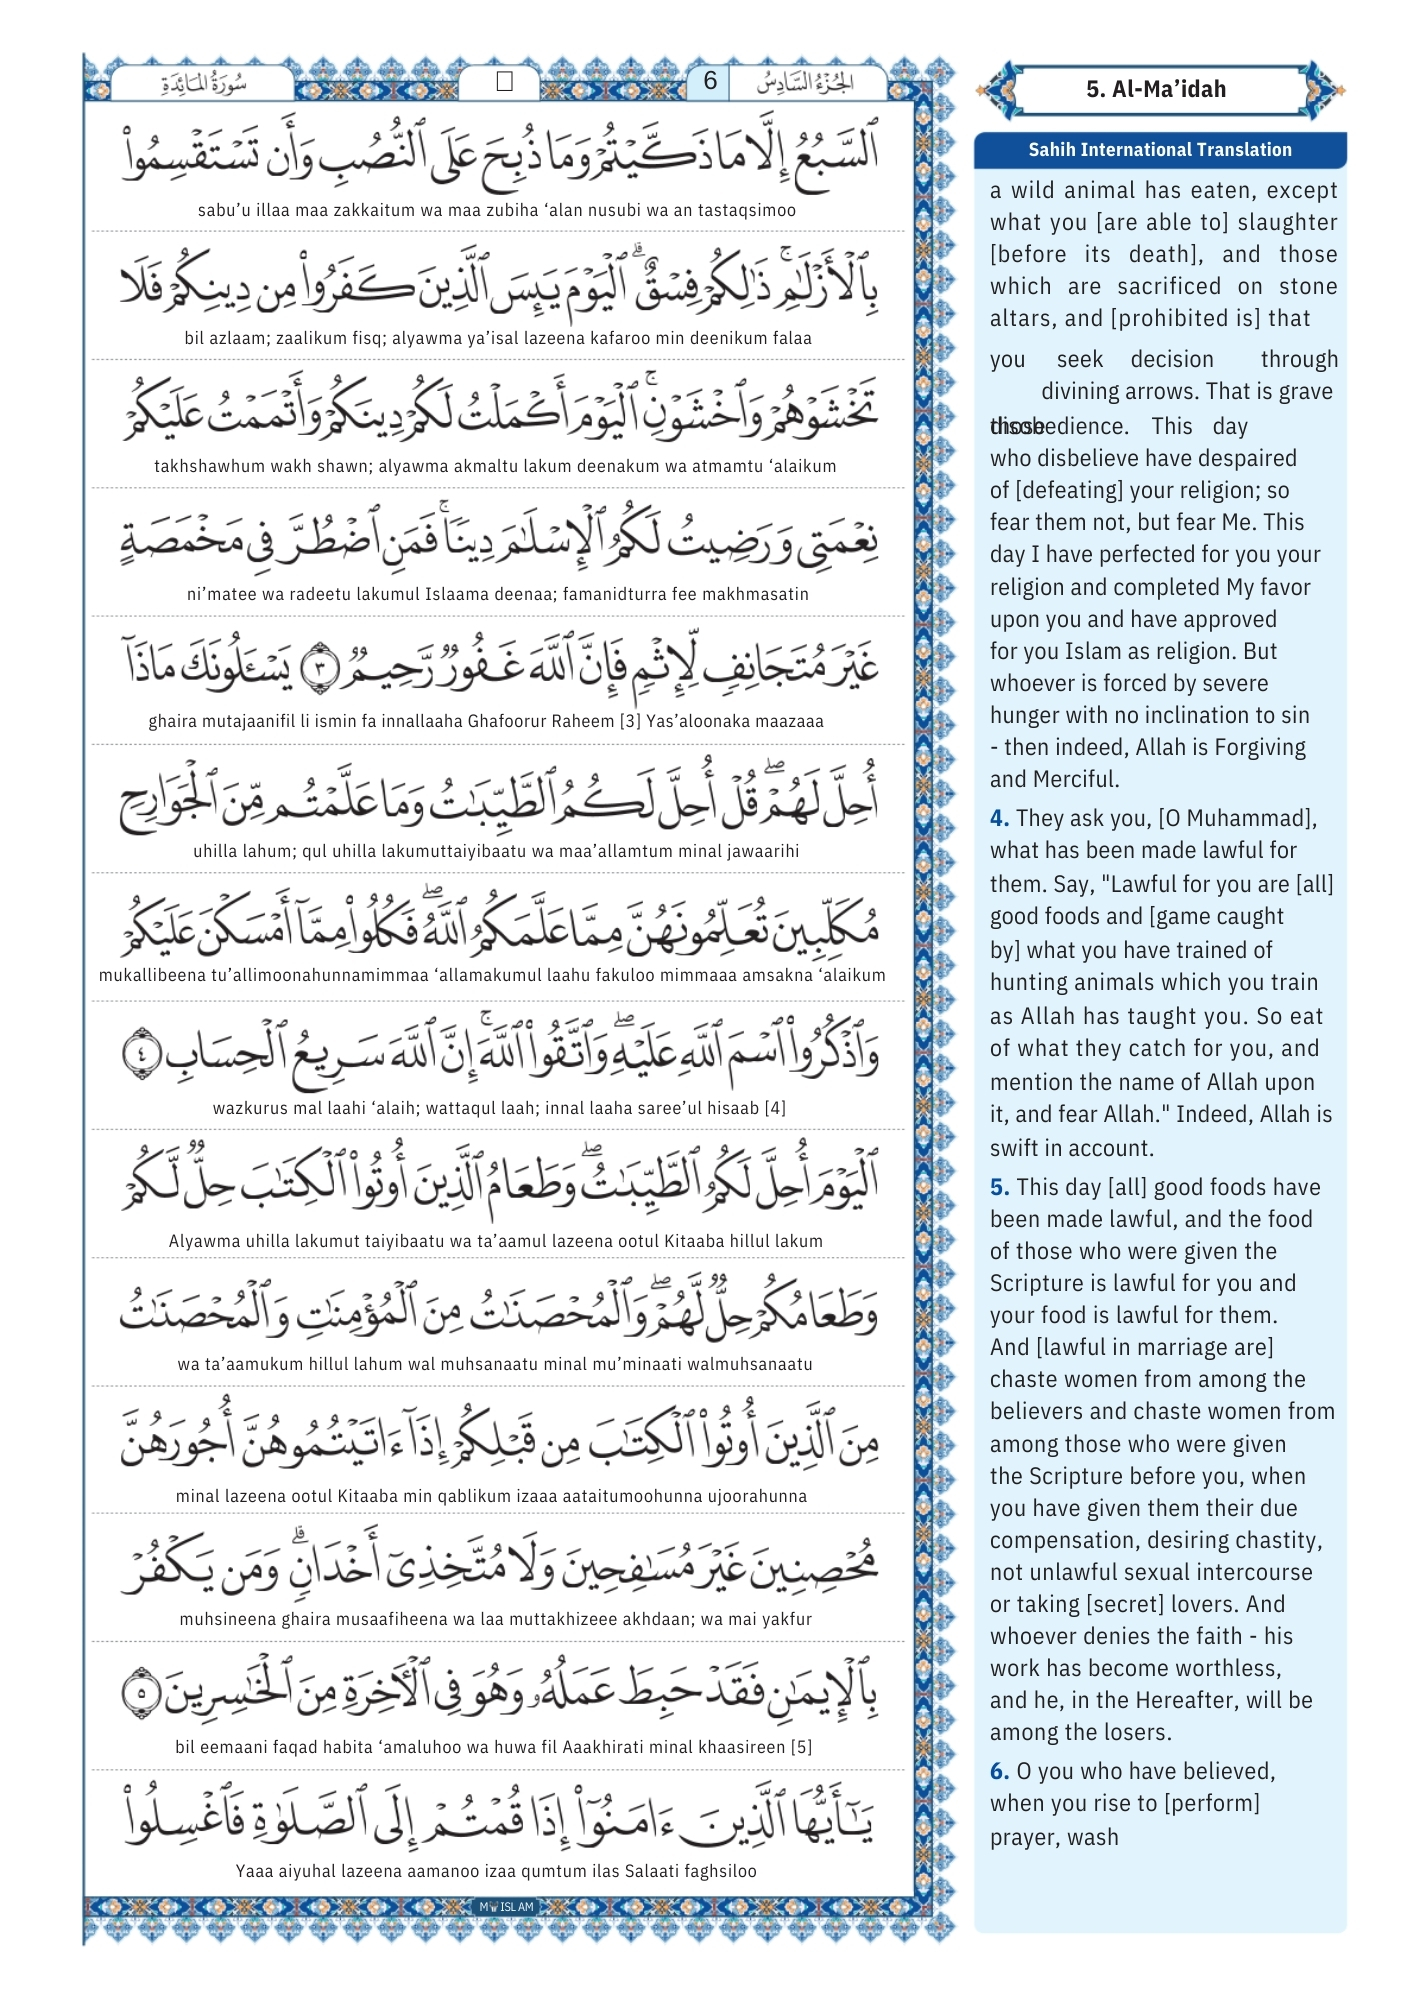 سُورَةُ المَائِدَةِ
6
الجُزْءُ السَّادِسُ
ٱلسَّبُعُ إِلَّا مَا ذَكَّيْتُمْ وَمَا ذُبِحَ عَلَى ٱلنُّصُبِ وَأَن تَسْتَقْسِمُوا۟
sabu’u illaa maa zakkaitum wa maa zubiha ‘alan nusubi wa an tastaqsimoo
بِٱلْأَزْلَٰمِ ۚ ذَٰلِكُمْ فِسْقٌ ۗ ٱلْيَوْمَ يَئِسَ ٱلَّذِينَ كَفَرُوا۟ مِن دِينِكُمْ فَلَا
bil azlaam; zaalikum fisq; alyawma ya’isal lazeena kafaroo min deenikum falaa
تَخْشَوْهُمْ وَٱخْشَوْنِ ۚ ٱلْيَوْمَ أَكْمَلْتُ لَكُمْ دِينَكُمْ وَأَتْمَمْتُ عَلَيْكُمْ
takhshawhum wakh shawn; alyawma akmaltu lakum deenakum wa atmamtu ‘alaikum
نِعْمَتِى وَرَضِيتُ لَكُمُ ٱلْإِسْلَٰمَ دِينًا ۚ فَمَنِ ٱضْطُرَّ فِى مَخْمَصَةٍ
ni’matee wa radeetu lakumul Islaama deenaa; famanidturra fee makhmasatin
غَيْرَ مُتَجَانِفٍ لِّإِثْمٍ فَإِنَّ ٱللَّهَ غَفُورٌ رَّحِيمٌ ٣ يَسْـَٔلُونَكَ مَاذَآ
ghaira mutajaanifil li ismin fa innallaaha Ghafoorur Raheem [3] Yas’aloonaka maazaaa
أُحِلَّ لَهُمْ ۖ قُلْ أُحِلَّ لَكُمُ ٱلطَّيِّبَٰتُ وَمَا عَلَّمْتُم مِّنَ ٱلْجَوَارِحِ
uhilla lahum; qul uhilla lakumuttaiyibaatu wa maa’allamtum minal jawaarihi
مُكَلِّبِينَ تُعَلِّمُونَهُنَّ مِمَّا عَلَّمَكُمُ ٱللَّهُ ۖ فَكُلُوا۟ مِمَّآ أَمْسَكْنَ عَلَيْكُمْ
mukallibeena tu’allimoonahunnamimmaa ‘allamakumul laahu fakuloo mimmaaa amsakna ‘alaikum
وَٱذْكُرُوا۟ ٱسْمَ ٱللَّهِ عَلَيْهِ ۖ وَٱتَّقُوا۟ ٱللَّهَ ۚ إِنَّ ٱللَّهَ سَرِيعُ ٱلْحِسَابِ ٤
wazkurus mal laahi ‘alaih; wattaqul laah; innal laaha saree’ul hisaab [4]
ٱلْيَوْمَ أُحِلَّ لَكُمُ ٱلطَّيِّبَٰتُ ۖ وَطَعَامُ ٱلَّذِينَ أُوتُوا۟ ٱلْكِتَٰبَ حِلٌّ لَّكُمْ
Alyawma uhilla lakumut taiyibaatu wa ta’aamul lazeena ootul Kitaaba hillul lakum
وَطَعَامُكُمْ حِلٌّ لَّهُمْ ۖ وَٱلْمُحْصَنَٰتُ مِنَ ٱلْمُؤْمِنَٰتِ وَٱلْمُحْصَنَٰتُ
wa ta’aamukum hillul lahum wal muhsanaatu minal mu’minaati walmuhsanaatu
مِنَ ٱلَّذِينَ أُوتُوا۟ ٱلْكِتَٰبَ مِن قَبْلِكُمْ إِذَآ ءَاتَيْتُمُوهُنَّ أُجُورَهُنَّ
minal lazeena ootul Kitaaba min qablikum izaaa aataitumoohunna ujoorahunna
مُحْصِنِينَ غَيْرَ مُسَٰفِحِينَ وَلَا مُتَّخِذِىٓ أَخْدَانٍ ۗ وَمَن يَكْفُرْ
muhsineena ghaira musaafiheena wa laa muttakhizeee akhdaan; wa mai yakfur
بِٱلْإِيمَٰنِ فَقَدْ حَبِطَ عَمَلُهُۥ وَهُوَ فِى ٱلْـَٔاخِرَةِ مِنَ ٱلْخَٰسِرِينَ ٥
bil eemaani faqad habita ‘amaluhoo wa huwa fil Aaakhirati minal khaasireen [5]
يَٰٓأَيُّهَا ٱلَّذِينَ ءَامَنُوٓا۟ إِذَا قُمْتُمْ إِلَى ٱلصَّلَوٰةِ فَٱغْسِلُوا۟
Yaaa aiyuhal lazeena aamanoo izaa qumtum ilas Salaati faghsiloo
5. Al-Ma’idah
Sahih International Translation
a wild animal has eaten, except
what you [are able to] slaughter
[before its death], and those
which are sacrificed on stone
altars, and [prohibited is] that
you seek decision through
divining arrows. That is grave
disobedience. This day those
who disbelieve have despaired
of [defeating] your religion; so
fear them not, but fear Me. This
day I have perfected for you your
religion and completed My favor
upon you and have approved
for you Islam as religion. But
whoever is forced by severe
hunger with no inclination to sin
- then indeed, Allah is Forgiving
and Merciful.
4. They ask you, [O Muhammad],
what has been made lawful for
them. Say, "Lawful for you are [all]
good foods and [game caught
by] what you have trained of
hunting animals which you train
as Allah has taught you. So eat
of what they catch for you, and
mention the name of Allah upon
it, and fear Allah." Indeed, Allah is
swift in account.
5. This day [all] good foods have
been made lawful, and the food
of those who were given the
Scripture is lawful for you and
your food is lawful for them.
And [lawful in marriage are]
chaste women from among the
believers and chaste women from
among those who were given
the Scripture before you, when
you have given them their due
compensation, desiring chastity,
not unlawful sexual intercourse
or taking [secret] lovers. And
whoever denies the faith - his
work has become worthless,
and he, in the Hereafter, will be
among the losers.
6. O you who have believed,
when you rise to [perform]
prayer, wash